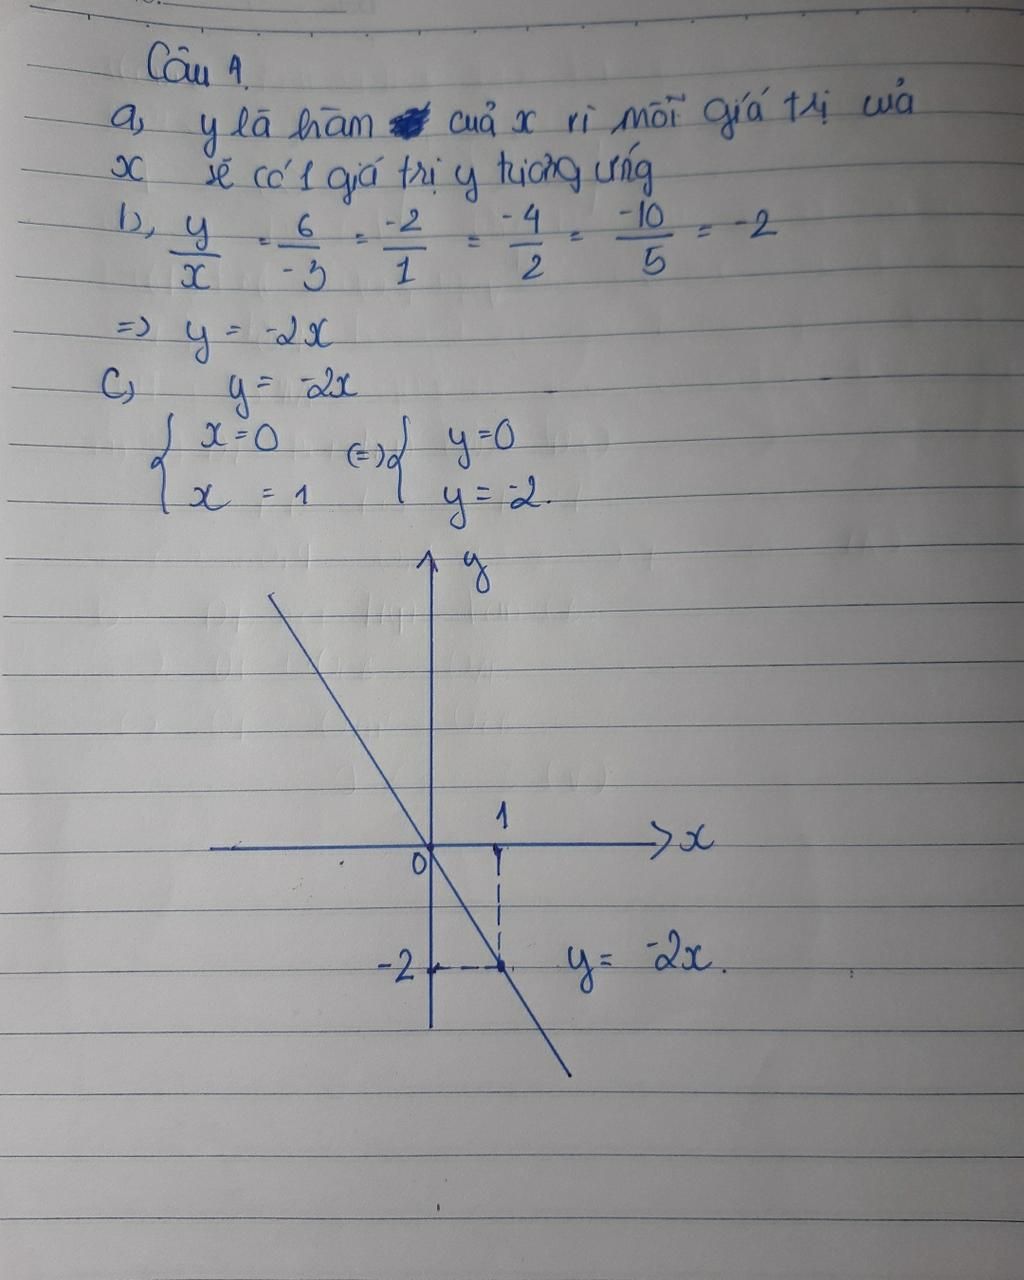 Câu 1.
a, y là hàm của x vì mỗi giá trị của
x sẽ có 1 giá trị y tương ứng
b, y/x = 6/-3 = -2/1 = -4/2 = -10/5 = -2
=> y = -2x
c, y = -2x
{ x = 0 (=) { y = 0
x = 1 y = -2.
y
1
x
0
-2
y = -2x.